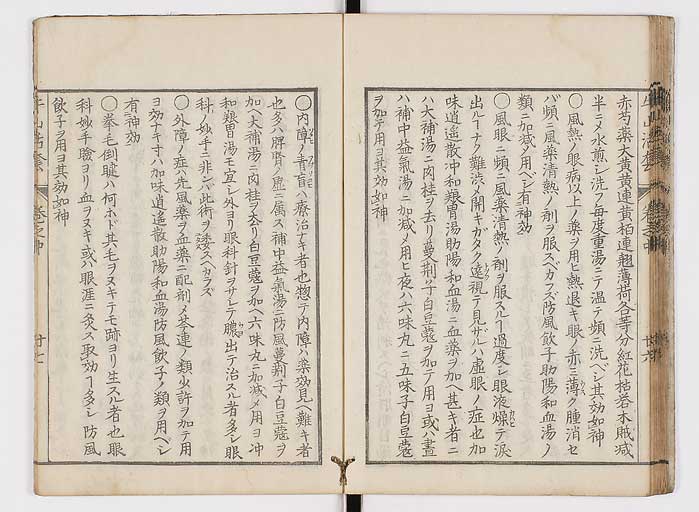 赤芍薬大黄黄連黄栢連翹薄荷各等分紅花枯呑木賊減
半ニメ水煎シ洗フ毎度重湯ニテ温テ頻ニ洗ベシ其効如神
〇風熱ノ眼病以上ノ藥ヲ用ヒ熱退キ眼ノ赤ミ薄ク腫消セ
バ頻ニ風藥清熱ノ剤ヲ服スベカラズ防風飲子助陽和血湯ノ
類ニ加減メ用ベシ有神効
〇風眼ニ頻ニ風藥清熱ノ剤ヲ服スルヿ過度シ眼液燥テ涙
出ルヿナク難渋メ開キガタク遠視テ見サルハ虚眼ノ症也加
味逍遥散冲和糓曽湯助陽和血湯ニ血藥ヲ加ヘ甚キ者ニ
ハ大補湯ニ肉桂ヲ去リ蔓荆子白豆蔲ヲ加テ用ヨ或ハ晝
ハ補中益氣湯ニ加減メ用ヒ夜ハ六味丸ニ五味子白豆蔲
ヲ加テ用ヨ其効如神
廿六
〇内障ノ青盲ハ療治ナキ者也惣テ内障ハ藥効見ヘ難キ者
也多ハ脾腎ノ虚ニ属ス補中益氣湯ニ防風蔓荆子白豆蔲ヲ
加ヘ大補湯ニ肉桂ヲ去リ白豆蔲ヲ加ヘ六味丸ニ加減メ用ヨ冲
和糓曽湯モ宜シ外ヨリ眼科針ヲサシテ膿出テ治スル者多シ眼
科ノ妙手ニ非ンバ此術ヲ
〇外障ノ症ハ先風藥ヲ血藥ニ配剤メ芩連ノ類少許ヲ加テ用
ヨ効ナキ寸ハ加味逍遥散助陽和血湯防風飲子ノ類ヲ用ベシ
有神効
〇拳毛倒睫ハ何ホド其毛ヲヌキテモ跡ヨリ生スル者也眼
科妙手瞼ヨリ血ヲヌキ或ハ眼涯ニ灸ス取効ヿ多シ防風
飲子ヲ用ヨ其効如神
牛山活套 巻之中 廿七